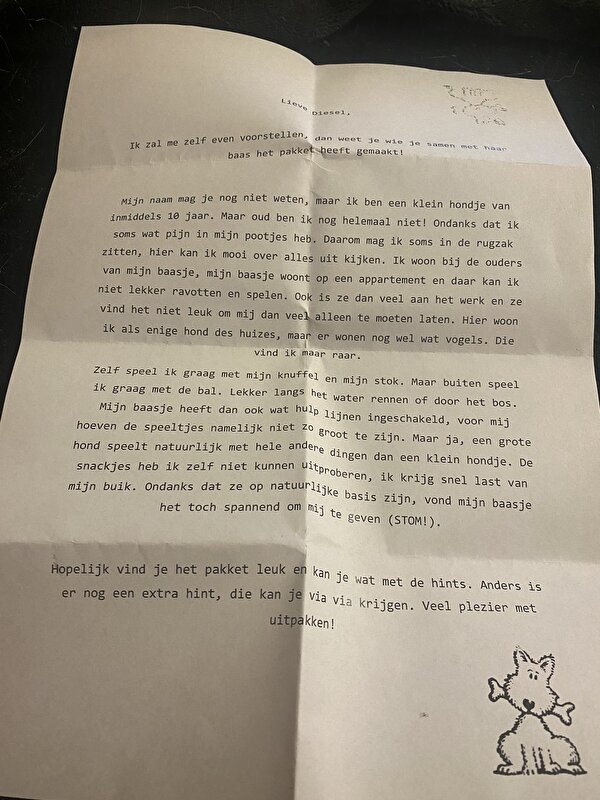 Lieve Diesel,
Ik zal me zelf even voorstellen, dan weet je wie je samen met haar
baas het pakket heeft gemaakt!
Mijn naam mag je nog niet weten, maar ik ben een klein hondje van
inmiddels 10 jaar. Maar oud ben ik nog helemaal niet! Ondanks dat ik
soms wat pijn in mijn pootjes heb. Daarom mag ik soms in de rugzak
zitten, hier kan ik mooi over alles uit kijken. Ik woon bij de ouders
van mijn baasje, mijn baasje woont op een appartement en daar kan ik
niet lekker ravotten en spelen. Ook is ze dan veel aan het werk en ze
vind het niet leuk om mij dan veel alleen te moeten laten. Hier woon
ik als enige hond des huizes, maar er wonen nog wel wat vogels. Die
vind ik maar raar.
Zelf speel ik graag met mijn knuffel en mijn stok. Maar buiten speel
ik graag met de bal. Lekker langs het water rennen of door het bos.
Mijn baasje heeft dan ook wat hulp lijnen ingeschakeld, voor mij
hoeven de speeltjes namelijk niet zo groot te zijn. Maar ja, een grote
hond speelt natuurlijk met hele andere dingen dan een klein hondje. De
snackjes heb ik zelf niet kunnen uitproberen, ik krijg snel last van
mijn buik. Ondanks dat ze op natuurlijke basis zijn, vond mijn baasje
het toch spannend om mij te geven (STOM!).
Hopelijk vind je het pakket leuk en kan je wat met de hints. Anders is
er nog een extra hint, die kan je via via krijgen. Veel plezier met
uitpakken!